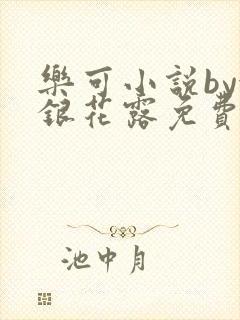 樂可小說by
銀花露免費
池中月